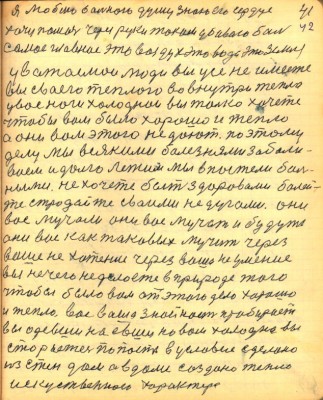 Я люблю больного душу знаю его сердце 41
хочу помоч через руки током убиваю бол 42
Самое главное это воздух это вода это земля
уважаемои люди вы усе не имеете
вы своего теплого во внутри тепло
у вас ноги холоднои вы толко хочете
чтобы вам было хорошо и тепло
а они вам этого не дают. поэтому
делу мы всякими болезнями заболи-
ваем и долго лежим мы в постели бол-
ными. не хочете быт здоровами болей-
те страдайте своими недугами. они
вас мучали они вас мучать и будуть
они вас как таковых мучит через
ваше не хотение через ваше неумение
вы нечего неделаете в природе того
чтобы было вам от этого дело хорошо
и тепло. вас ваша знойност пробирает
вы одевши наевши но вам холодно вы
сторожаетес попасть в условие сделано
из стен дом а в доми создано тепло
искуственного характера